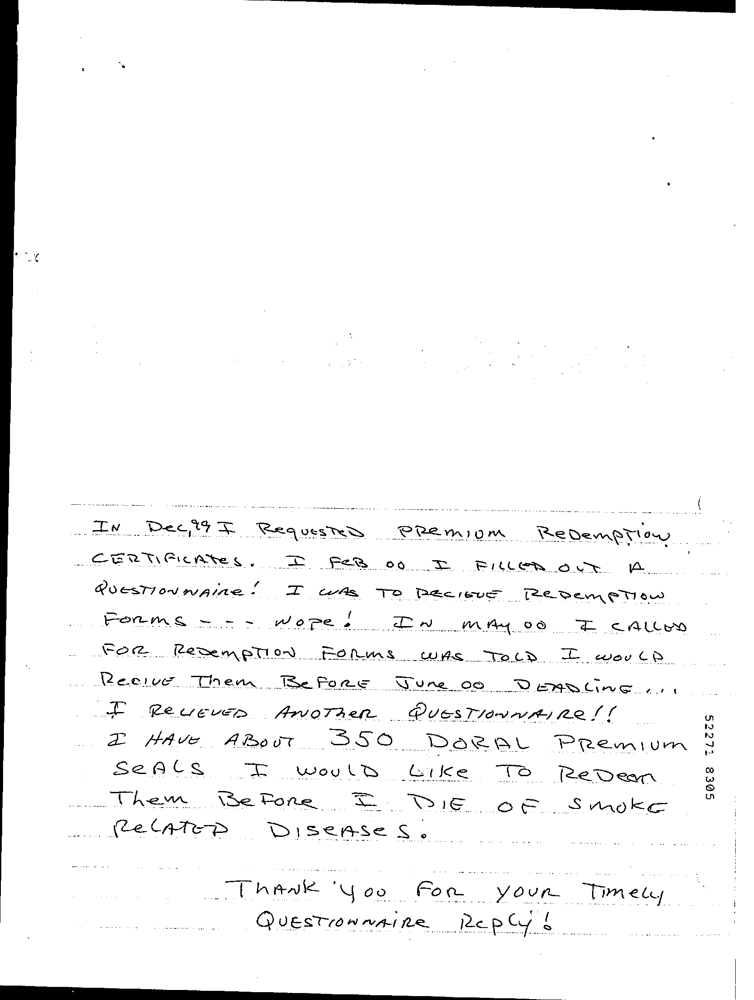 IN Dec, 99 I RequesTeD PRemium ReDempTion
CERTIFICATes. I FeB 00 I FILLED OUT A
QUESTIONNAire! I WAS TO RECIEVE ReDempTIOW
FORMS - - - Nope! IN MAY 00 I CALLED
FOR ReDempTION FORMS WAS TOLD I WOULD
RECIVE Them BeFORE JUNe 00 DEADLINE ...
I ReLIEVED ANOTher QUESTIONNAIRe!!
I HAVE ABOUT 350 DORAL PRemium
SeALS I WOULD LIKe TO ReDeem
Them BeFore I DIE OF SMOKE
ReLATeD DISeASeS.
ThANK YOU FOR YOUR Timely
QUESTIONNAIRe RepLy!
52271 8305